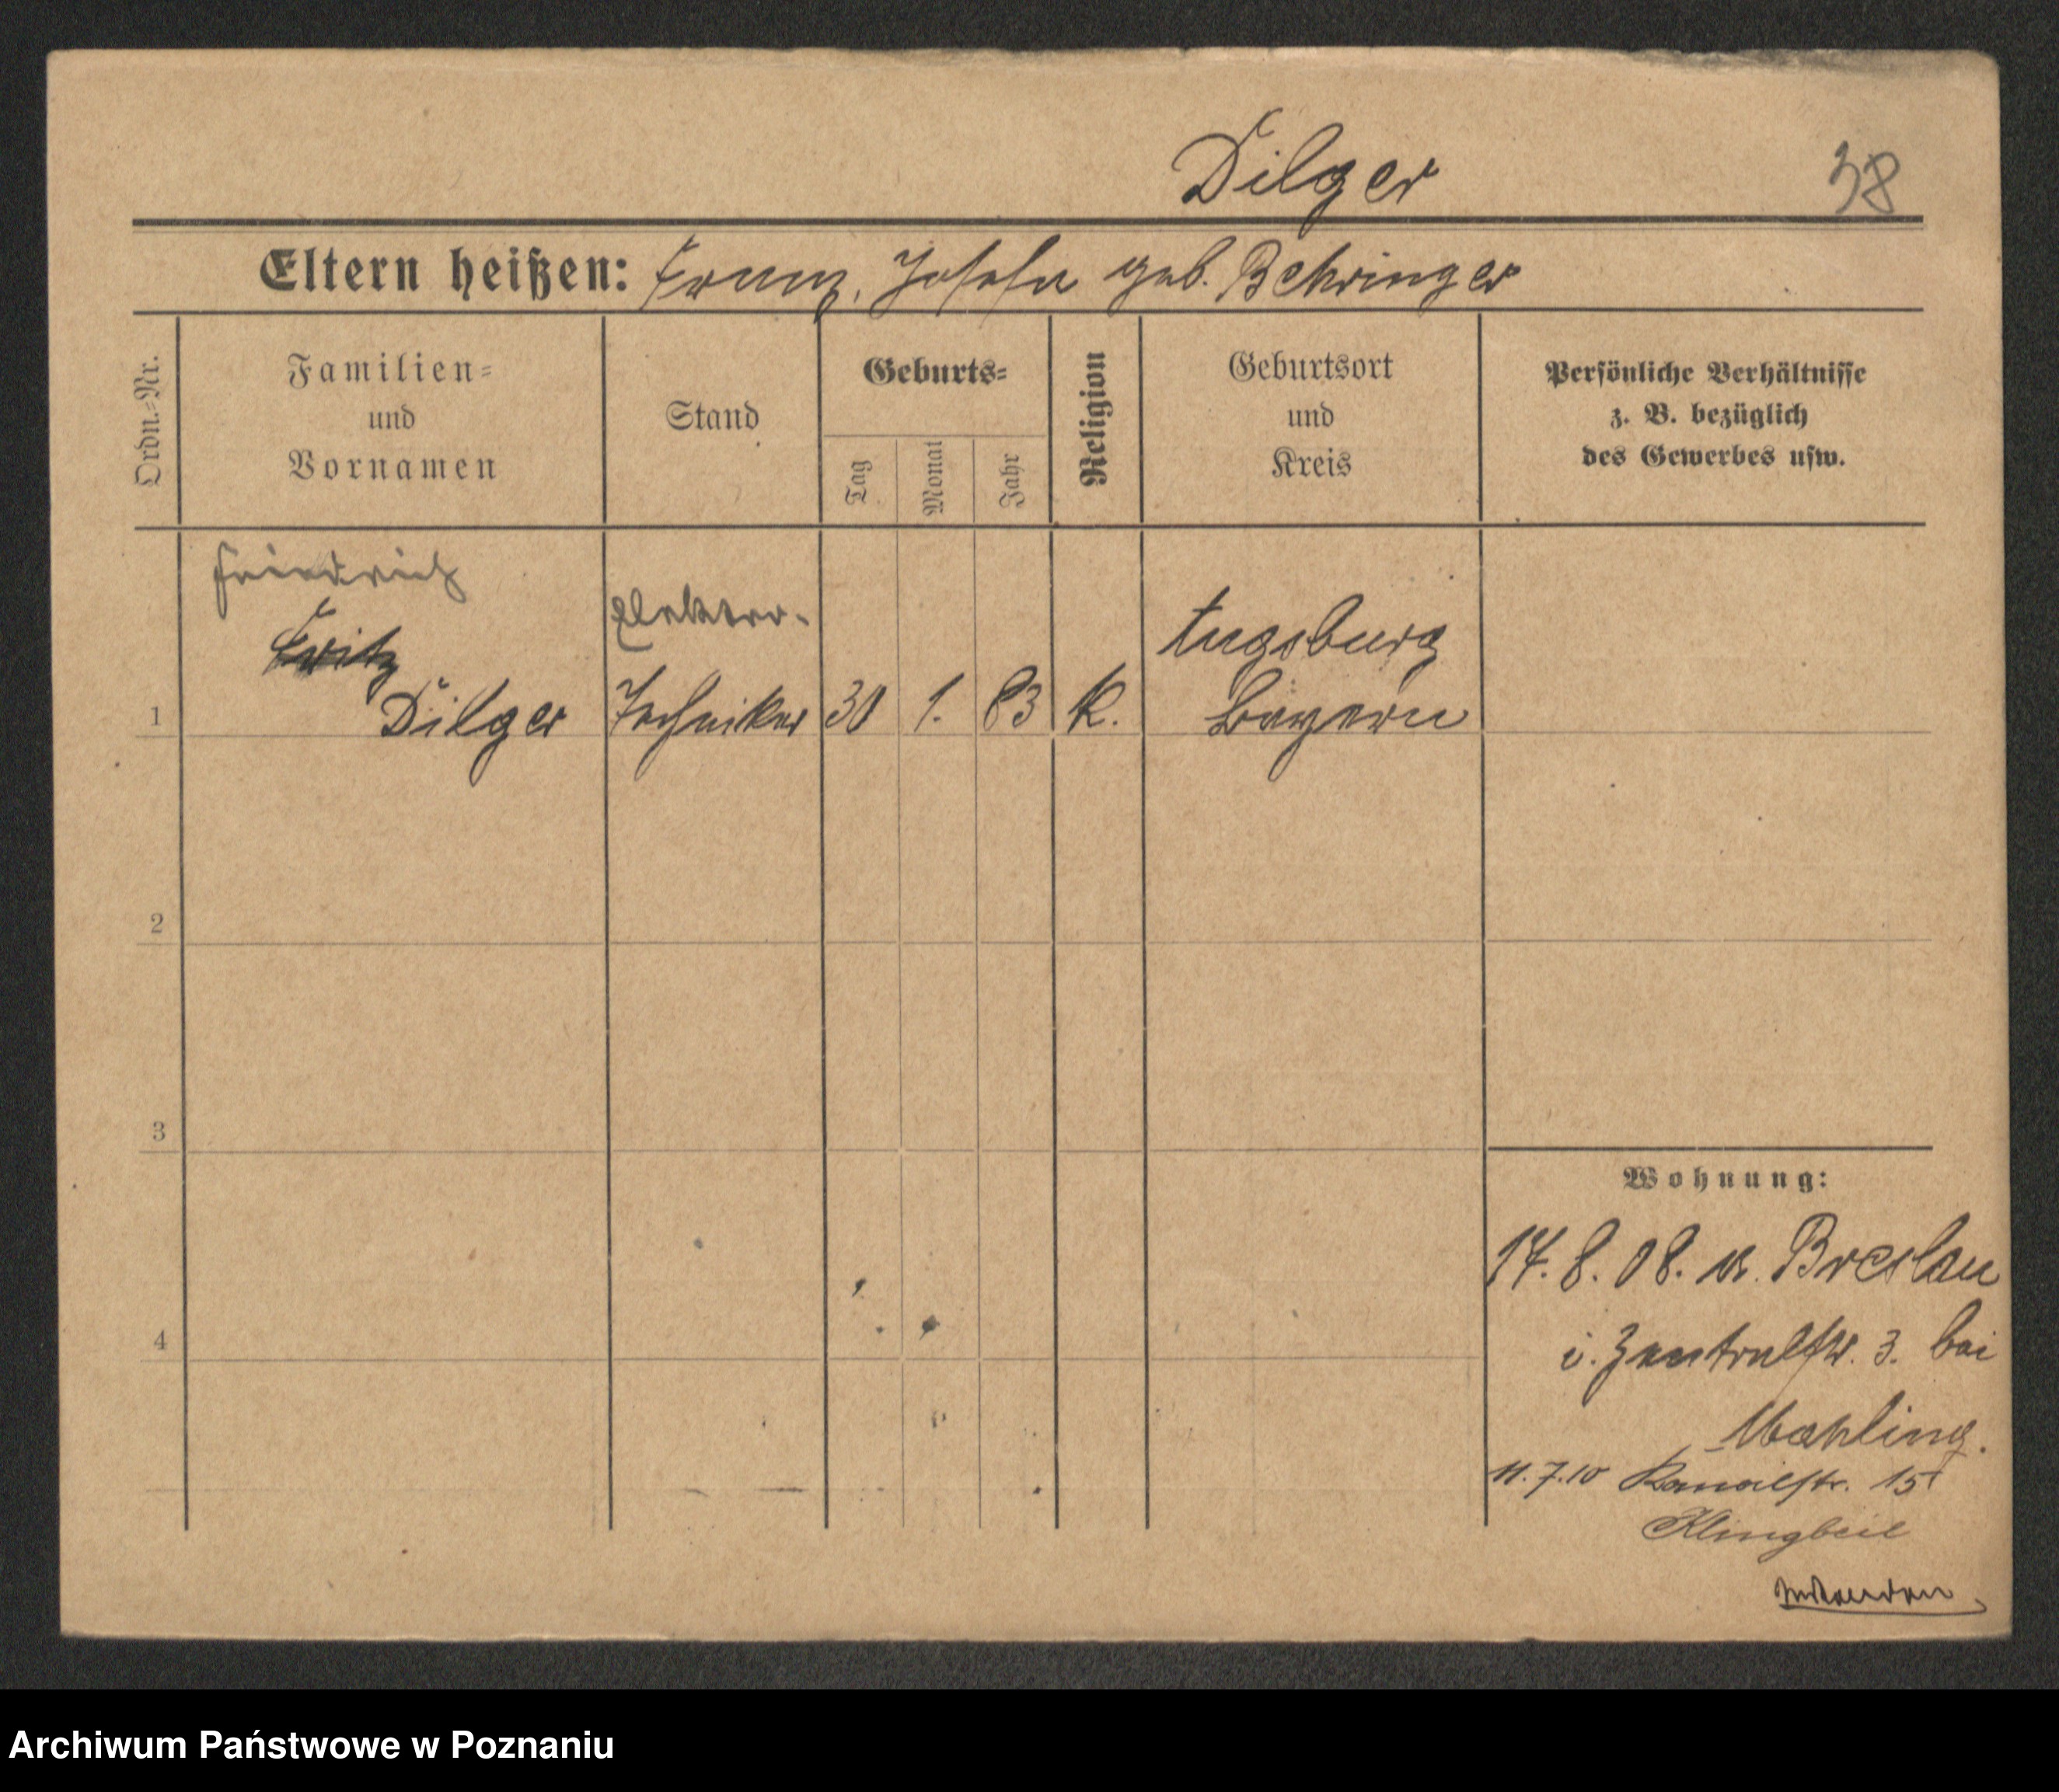 Dilger
38
Eltern heißen: Franz, Josefa geb. Behringer
Ordn.-Nr.
Familien-
und
Vornamen
Stand
Geburts-
Tag
Monat
Jahr
Religion
Geburtsort
und
Kreis
Persönliche Verhältnisse
z. B. bezüglich
des Gewerbes usw.
Friedrich
Elektro-
Fritz
Augsburg
1 Dilger Techniker 30 1. 83 K. Bayern
2
3
Wohnung:
17. 8. 08. v. Breslau
4
i. Zentralstr. 3. bei
Mahling.
11.7.10 Kanalstr. 15
Klingbeil
Archiwum Państwowe w Poznaniu